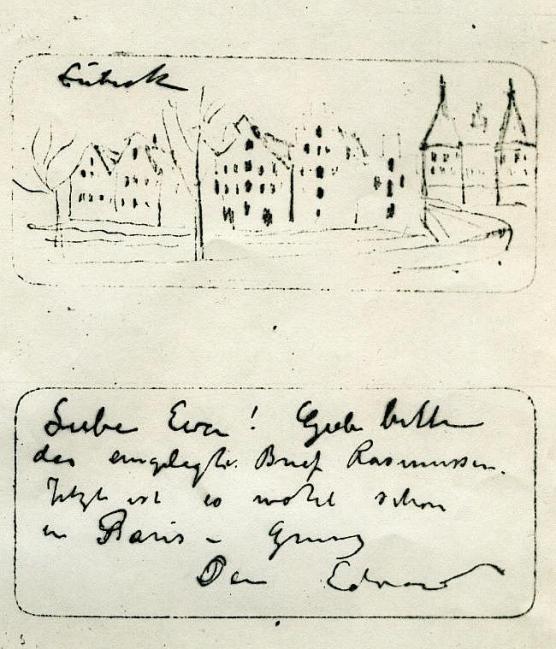 Lübeck
Liebe Eva! Gebe bitte
das eingelegte Brief Rasmussen.
Jetzt ist es wohl schon
in Paris – Gruss
Dein Edvard